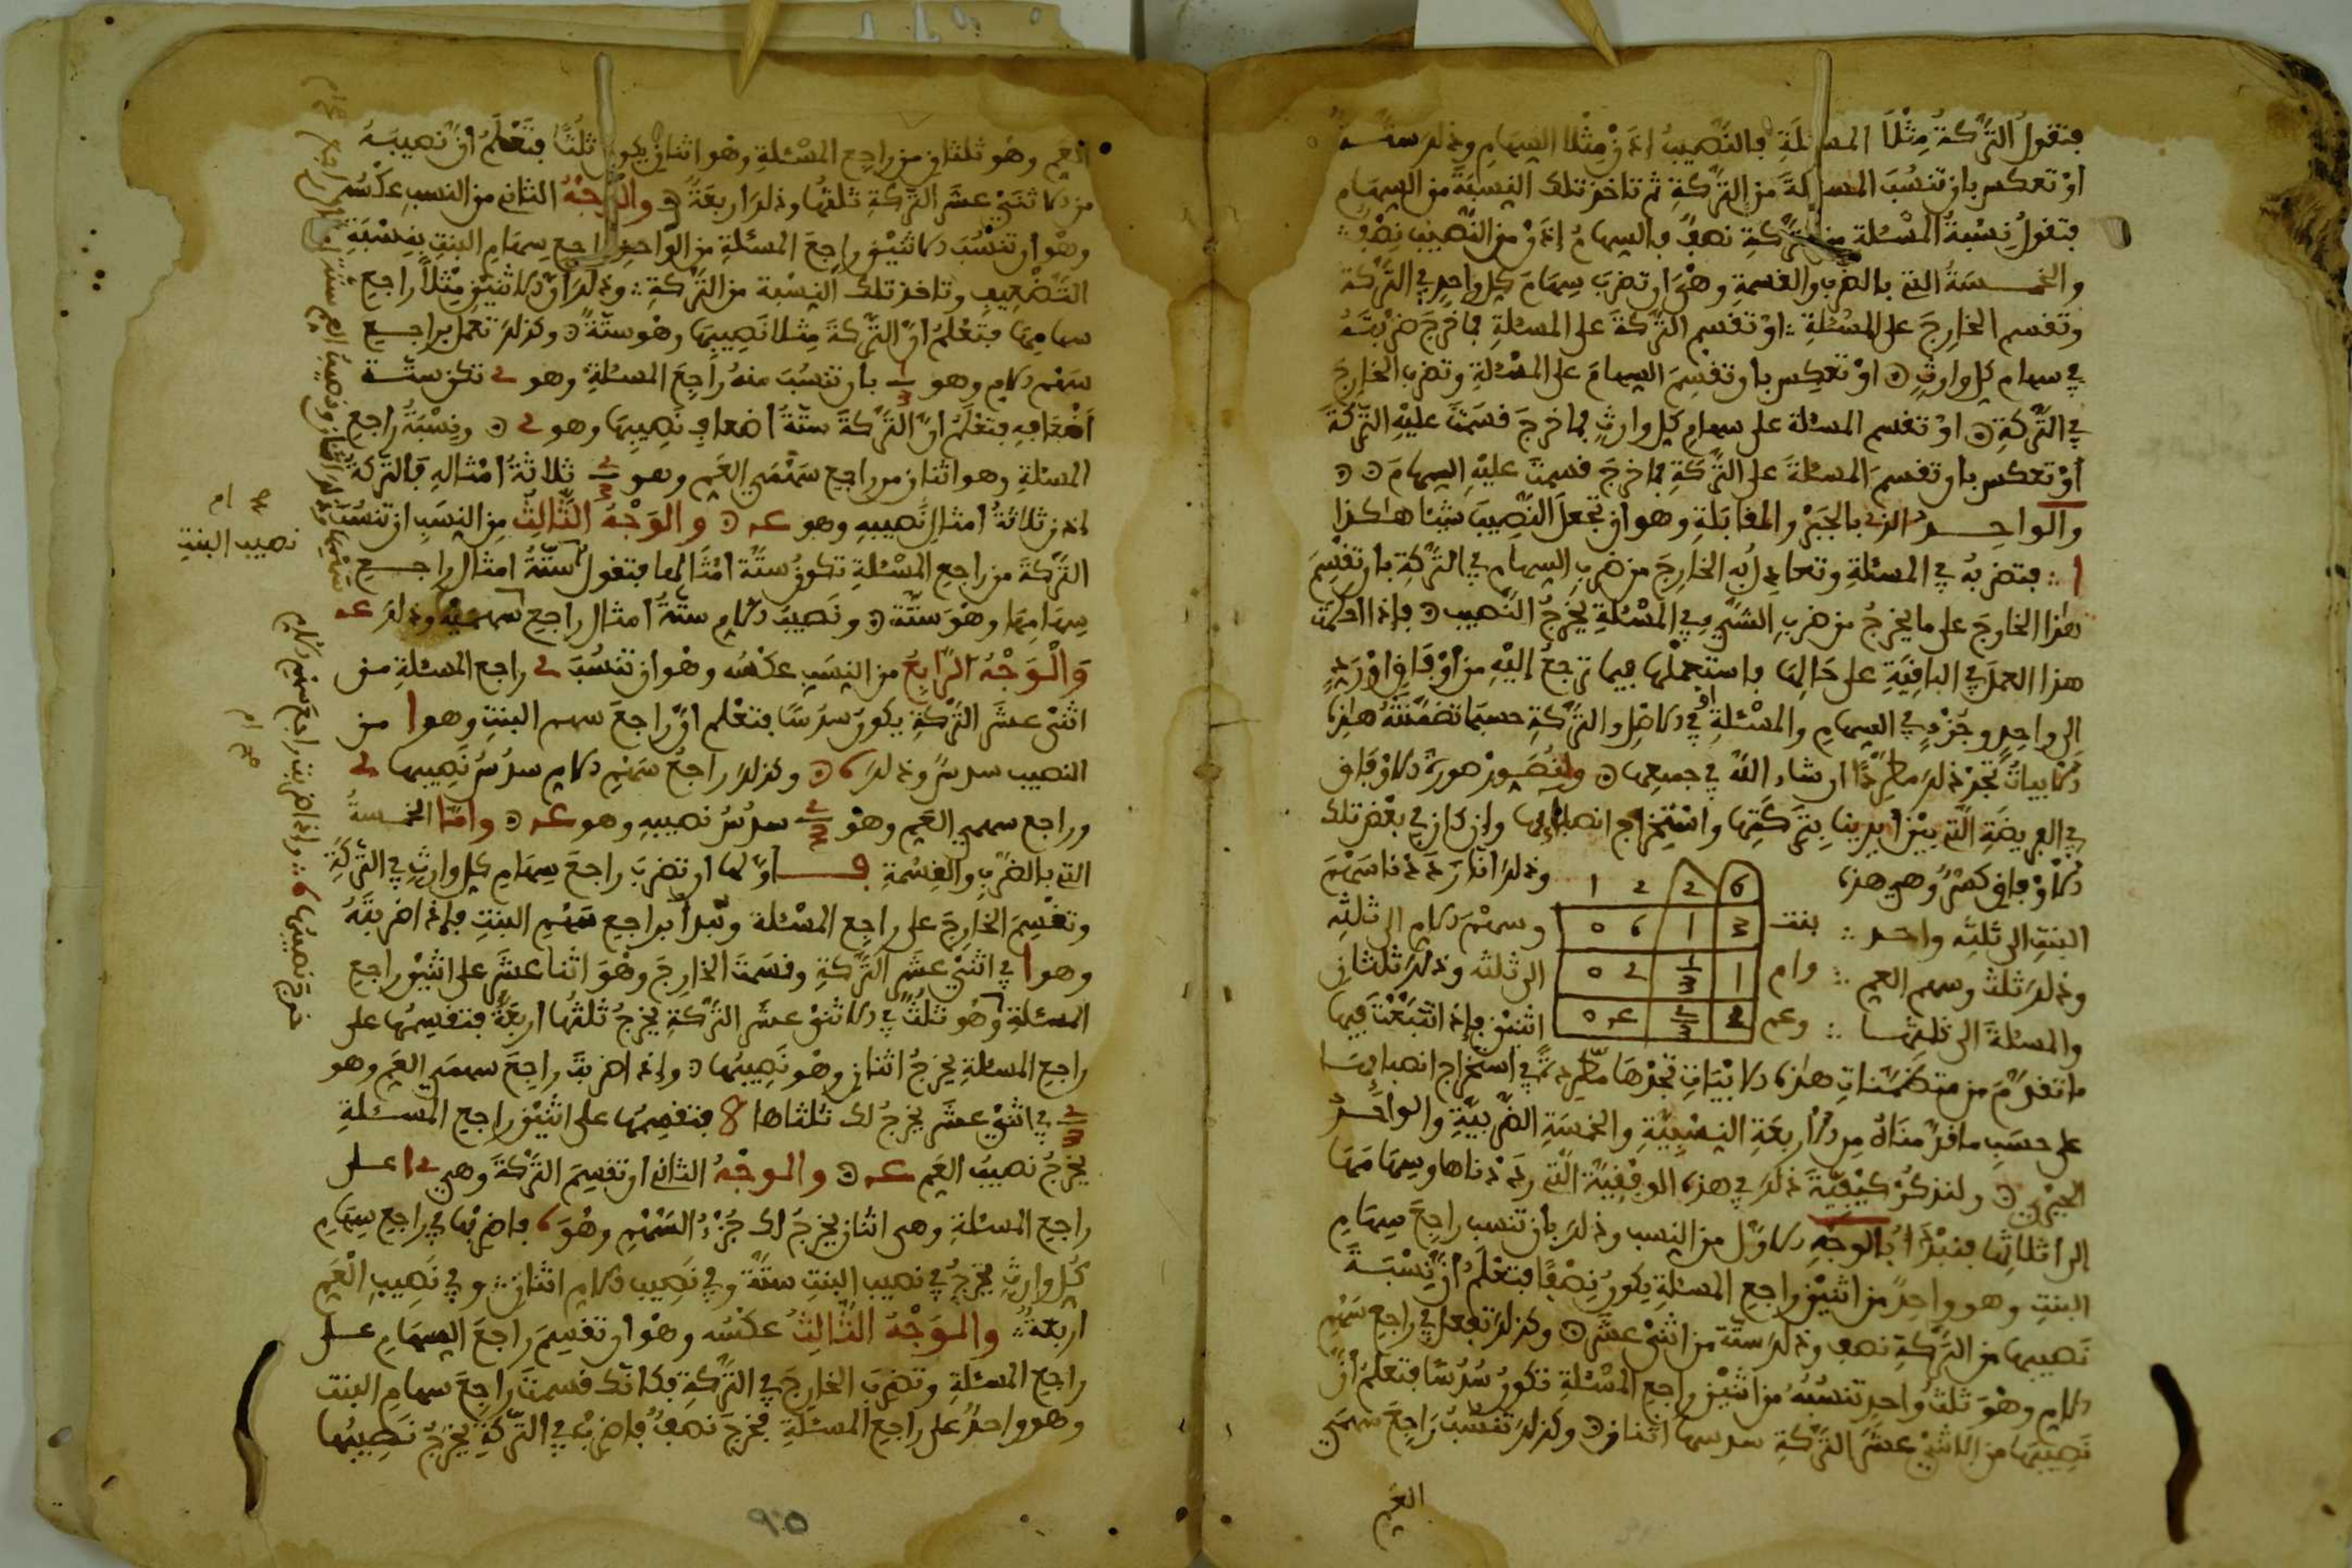 فتقول التركة مثلا المسئلة فالنصيب إذن مثلا السهام وذلك ستة
أو تعكس بأن تنسب المسئلة من التركة ثم تأخذ تلك النسبة من السهام
فتقول نسبة المسئلة من التركة نصف فالسهام إذن من النصيب نصف
والخمسة التي بالضرب والقسمة وهي أن تضرب سهام كل واحد في التركة
وتقسم الخارج على المسئلة أو تقسم التركة على المسئلة فما خرج ضربته
في سهام كل وارث أو تعكس بأن تقسم السهام على المسئلة وتضرب الخارج
في التركة أو تقسم المسئلة على سهام كل وارث فما خرج قسمت عليه التركة
أو تعكس بأن تقسم المسئلة على التركة فما خرج قسمت عليه السهام
والواحد الذي بالجبر والمقابلة وهو أن تجعل النصيب شيئا هكذا
ا فتضربه في المسئلة وتعادل به الخارج من ضرب السهام في التركة بأن تقسم
هذا الخارج على ما يخرج من ضرب الشيء في المسئلة يخرج النصيب فإذا
هذا العمل في الباقية على حالها فاستعملها فيما ترجع إليه من أوفاق أو رد
الى واحد وجزء في السهام والمسئلة أو في الاصل والتركة حسبما تضمنته هذه
الابيات تجد ذلك مطردا ان شاء الله في جميعها ولنصور صورة الاوفاق
في الفريضة التي بين أيدينا بتركتها واستخراج انصبائها وإن كان في بعض تلك
الاوفاق كسر وهي هذه
6 2 2 1
وذلك أنا رددنا سهم
البنت الى ثلثه واحد
بنت 3 1 6 0
وسهم الام الى ثلثه
وذلك ثلث وسهم العم
وام 1 1/3 2 0
الى ثلثه وذلك ثلثان
والمسئلة الى ثلثها
وعم 2 2/3 4 0
اثنين فإذا اتبعت فيها
ما تقدم من متضمنات هذه الابيات تجدها مطردة في استخراج انصبائها
على حسب ما قدمناه من الاربعة النسبية والخمسة الضربية والواحد
الجبري ولنذكر كيفية ذلك في هذه الوفقية التي رددناها وسهامها
الى اثلاثها فنبدأ بالوجه الاول من النسب وذلك بأن تنسب راجع سهام
البنت وهو واحد من اثنين راجع المسئلة يكون نصفا فتعلم أن نسبة
نصيبها من التركة نصف وذلك ستة من اثني عشر وكذلك تفعل في راجع سهم
الام وهو ثلث واحد تنسبه من اثنين راجع المسئلة تكون سدسا فتعلم أن
نصيبها من الاثني عشر التركة سدسها اثنان وكذلك تنسب راجع سهمي
العم
العم وهو ثلثان من راجع المسئلة وهو اثنان يكون ثلثا فتعلم أن نصيبه
من الاثني عشر التركة ثلثها وذلك اربعة والوجه الثاني من النسب عكسه
وهو أن تنسب الاثنين راجع المسئلة من الواحد راجع سهام البنت بنسبة
التضعيف وتأخذ تلك النسبة من التركة وذلك أن الاثنين مثلا راجع
سهامها فتعلم أن التركة مثلا نصيبها وهو ستة وكذلك تعمل براجع
سهم الام وهو 1/3 بأن تنسب منه راجع المسئلة وهو 2 تكن ستة
أضعافه فتعلم أن التركة ستة أضعاف نصيبها وهو 2 ونسبة راجع
المسئلة وهو اثنان من راجع سهمي العم وهو 2/3 ثلاثة أمثاله فالتركة
إذن ثلاثة أمثال نصيبه وهو 4 والوجه الثالث من النسب أن تنسب
التركة من راجع المسئلة تكون ستة أمثالها فتقول ستة امثال راجع
نصيب البنت
سهامها وهو ستة ونصيب الام ستة أمثال راجع سهمها وذلك
والوجه الرابع من النسب عكسه وهو أن تنسب 2 راجع المسئلة من
اثني عشر التركة يكون سدسا فتعلم أن راجع سهم البنت وهو 1 من
النصيب سدس وذلك 6 وكذلك راجع سهم الام سدس نصيبها 2
وراجع سهمي العم وهو 2/3 سدس نصيبه وهو 4 وأما الخمسة
التي بالضرب والقسمة فأولها أن تضرب راجع سهام كل وارث في التركة
وتقسم الخارج على راجع المسئلة ونبدأ براجع سهم البنت فإذا ضربته
وهو 1 في اثني عشر التركة وقسمت الخارج وهو اثنا عشر على اثنين راجع
المسئلة وهو ثلث في الاثني عشر التركة يخرج ثلثها أربعة فتقسمها على
راجع المسئلة يخرج اثنان وهو نصيبها وإذا ضربت راجع سهمي العم وهو
2/3 في اثني عشر يخرج لك ثلثاها 8 فتقسمها على اثنين راجع المسئلة
يخرج نصيب العم 4 والوجه الثاني أن تقسم التركة وهي 12 على
راجع المسئلة وهي اثنان يخرج لك جزء السهم وهو 6 فاضربها في راجع سهام
كل وارث يخرج في نصيب البنت ستة وفي نصيب الام اثنان وفي نصيب العم
أربعة والوجه الثالث عكسه وهو أن تقسم راجع السهام على
راجع المسئلة وتضرب الخارج في التركة فكأنك قسمت راجع سهام البنت
وهو واحد على راجع المسئلة فخرج نصف فاضربه في التركة يخرج نصيبها